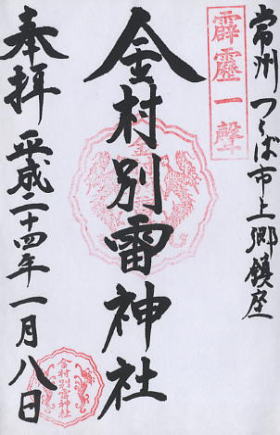 常州つくば市上郷鎮座
霹靂一聲
金村別雷神社
奉拝 平成二十四年一月八日
金村別雷神社